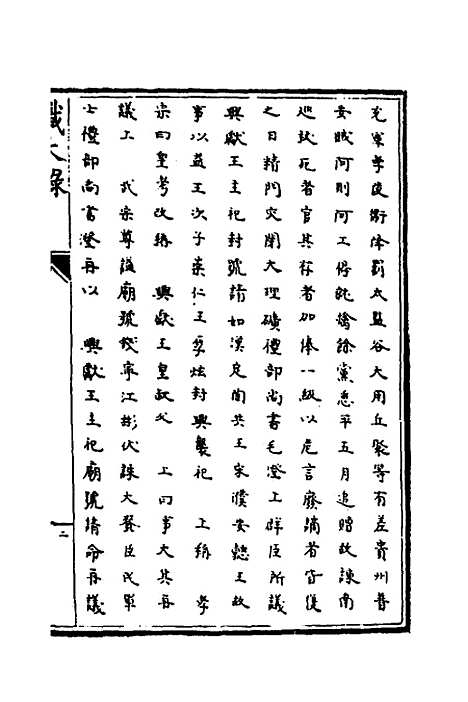 充軍孝陵衛降罰太監谷大用丘聚等有差貴州普
安賊阿則阿工倡亂擒餘黨悉平五月追贈故諫南
巡試死者官其存者加俸一級以危言廢謫者皆復
之日精門災開大理礦禮部尚書毛澄上群臣所議
興獻王主祀封號請如漢定陶共王宋濮安懿王故
事以益王次子崇仁王厚炫封興襲祀 上稱 孝
宗曰皇考改稱 興獻王皇叔父 上曰事大其再
議上 武宗尊謚廟號錢寧江彬伏誅大賚臣民軍
士禮部尚書澄再以 興獻王主祀廟號請命再議
識大錄
二